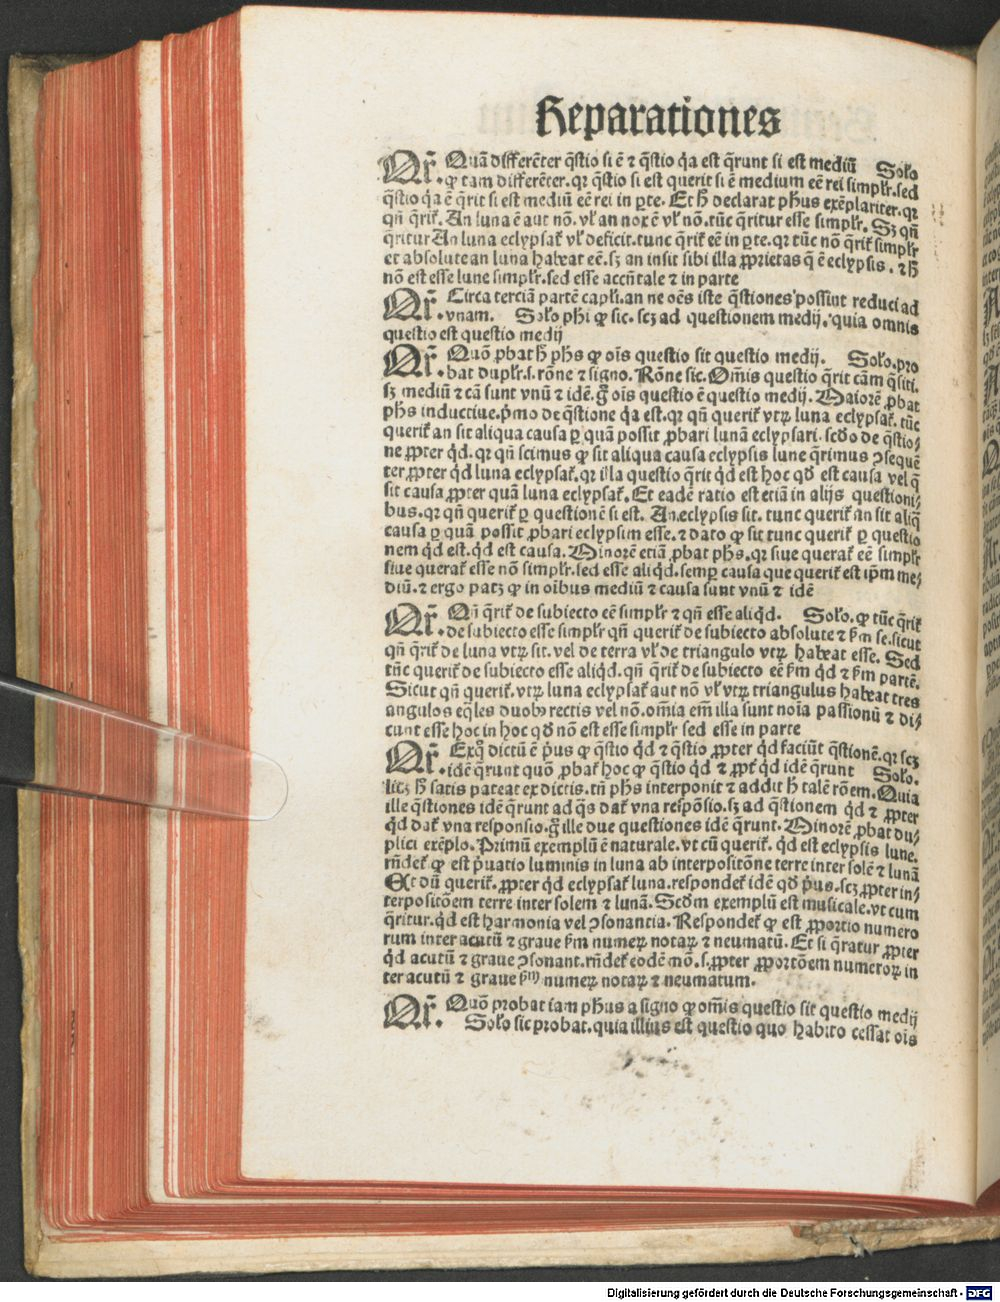 Reparationes
Qr̄. Quā differēter q̄stio si ē ⁊ q̄stio q̇a est q̄runt si est mediū Soło
. ꝙ tam differēter. qꝛ q̄stio si est querit si ē medium eē rei simpłr. sed
q̄stio q̇a ē q̄rit si est mediū eē rei in ꝑte. Et h̄ declarat pħus exēplariter. qꝛ
qn̄ q̄rit᷑. An luna ē aut nō. vł an nox ē vł nō. tūc q̄ritur esse simpłr. Sꝫ qn̄
q̄ritur An luna eclypsat᷑ vł deficit. tunc q̄rit᷑ eē in ꝑte. qꝛ tūc nō q̄rit᷑ simpłr
et absolute an luna habeat eē. sꝫ an insit sibi illa ꝓprietas q̄ ē eclypsis. ⁊ h̄
nō est esse lune simpłr. sed esse accn̄tale ⁊ in parte
Qr̄. Circa terciā partē capłi. an ne oēs iste q̄stiones possint reduci ad
. vnam. Soło pħi ꝙ sic. scꝫ ad questionem medij. quia omnis
questio est questio medij
Qr̄. Quō ꝓbat h̄ pħs ꝙ oīs questio sit questio medij. Soło. pro
. bat dupłr. s. rōne ⁊ signo. Rōne sic. Om̄is questio q̄rit cām q̄siti.
sꝫ mediū ⁊ cā sunt vnū ⁊ idē. g̊ oīs questio ē questio medij. Maiorē ꝓbat
pħs inductiue. p̄mo de q̄stione q̇a est. qꝛ qn̄ querit᷑ vtꝝ luna eclypsat᷑. tūc
querit᷑ an sit aliqua causa ꝑ quā possit ꝓbari lunā eclypsari. scḋo de q̄stio⸗
ne ꝓpter q̇d. qꝛ qn̄ scimus ꝙ sit aliqua causa eclypsis lune q̄rimus ↄsequē
ter ꝓpter q̇d luna eclypsat᷑. qꝛ illa questio q̄rit q̇d est hoc qḋ est causa vel q̄
sit causa ꝓpter quā luna eclypsat᷑. Et eadē ratio est etiā in alijs questioni⸗
bus. qꝛ qn̄ querit᷑ ꝑ questionē si est. An. eclypsis sit. tunc querit᷑ an sit aliq̄
causa ꝑ quā possit ꝓbari eclypsim esse. ⁊ dato ꝙ sit tunc querit᷑ ꝑ questio
nem q̇d est. q̇d est causa. Minorē etiā ꝓbat pħs. qꝛ siue querat᷑ eē simpłr
siue querat᷑ esse nō simpłr. sed esse aliq̇d. semꝑ causa que querit᷑ est ip̄m me⸗
diū. ⁊ ergo patꝫ ꝙ in oībus mediū ⁊ causa sunt vnū ⁊ idē
Qr̄. Qn̄ q̄rit᷑ de subiecto eē simpłr ⁊ qn̄ esse aliq̇d. Soło. ꝙ tūc q̄rit᷑
. de subiecto esse simpłr qn̄ querit᷑ de subiecto absolute ⁊ ẜm se. sicut
qn̄ q̄rit᷑ de luna vtꝝ sit. vel de terra vł de triangulo vtꝝ habeat esse. Sed
tūc querit᷑ de subiecto esse aliq̇d. qn̄ q̄rit᷑ de subiecto eē ẜm q̇d ⁊ ẜm partē.
Sicut qn̄ querit᷑. vtꝝ luna eclypsat᷑ aut nō vł vtꝝ triangulus habeat tres
angulos eq̄les duobꝰ rectis vel nō. om̄ia em̄ illa sunt noīa passionū ⁊ di⸗
cunt esse hoc in hoc qḋ nō est esse simpłr sed esse in parte
Qr̄. Ex q̊ dictū ē p̄us ꝙ q̄stio q̇d ⁊ q̄stio ꝓpter q̇d faciūt q̄stionē. qꝛ scꝫ
. idē q̄runt quō ꝓbat᷑ hoc ꝙ q̄stio q̇d ⁊ ꝓpt᷑ q̇d idē q̄runt Soło.
licꝫ h̄ satis pateat ex dictis. tn̄ pħs interponit ⁊ addit h̄ talē rōem. Quia
ille q̄stiones idē q̄runt ad q̄s dat᷑ vna respōsio. sꝫ ad q̄stionem q̇d ⁊ ꝓpter
q̇d dat᷑ vna responsio. g̊ ille due questiones idē q̄runt. Minorē ꝓbat du⸗
plici exēplo. Primū exemplū ē naturale. vt cū querit᷑. q̇d est eclypsis lune.
rn̄det᷑ ꝙ est p̄uatio luminis in luna ab interpositōne terre inter solē ⁊ lunā
Et dū querit᷑. ꝓpter q̇d eclypsat᷑ luna. respondet᷑ idē qḋ p̄us. scꝫ ꝓpter in⸗
terpositōem terre inter solem ⁊ lunā. Scḋm exemplū est musicale. vt cum
q̄ritur. q̇d est harmonia vel ↄsonantia. Respondet᷑ ꝙ est ꝓportio numero
rum inter acutū ⁊ graue ẜm numeꝝ notaꝝ ⁊ neumatū. Et si q̄ratur ꝓpter
q̇d acutū ⁊ graue ↄsonant. rn̄det᷑ eodē mō. s. ꝓpter ꝓportōem numeroꝝ in
ter acutū ⁊ graue ẜm numeꝝ notaꝝ ⁊ neumatum.
Qr̄. Quō probat iam pħus a signo ꝙ om̄is questio sit questio medij
. Soło sic probat. quia illius est questio quo habito cessat oīs
Digitalisierung gefördert durch die Deutsche Forschungsgemeinschaft - DFG